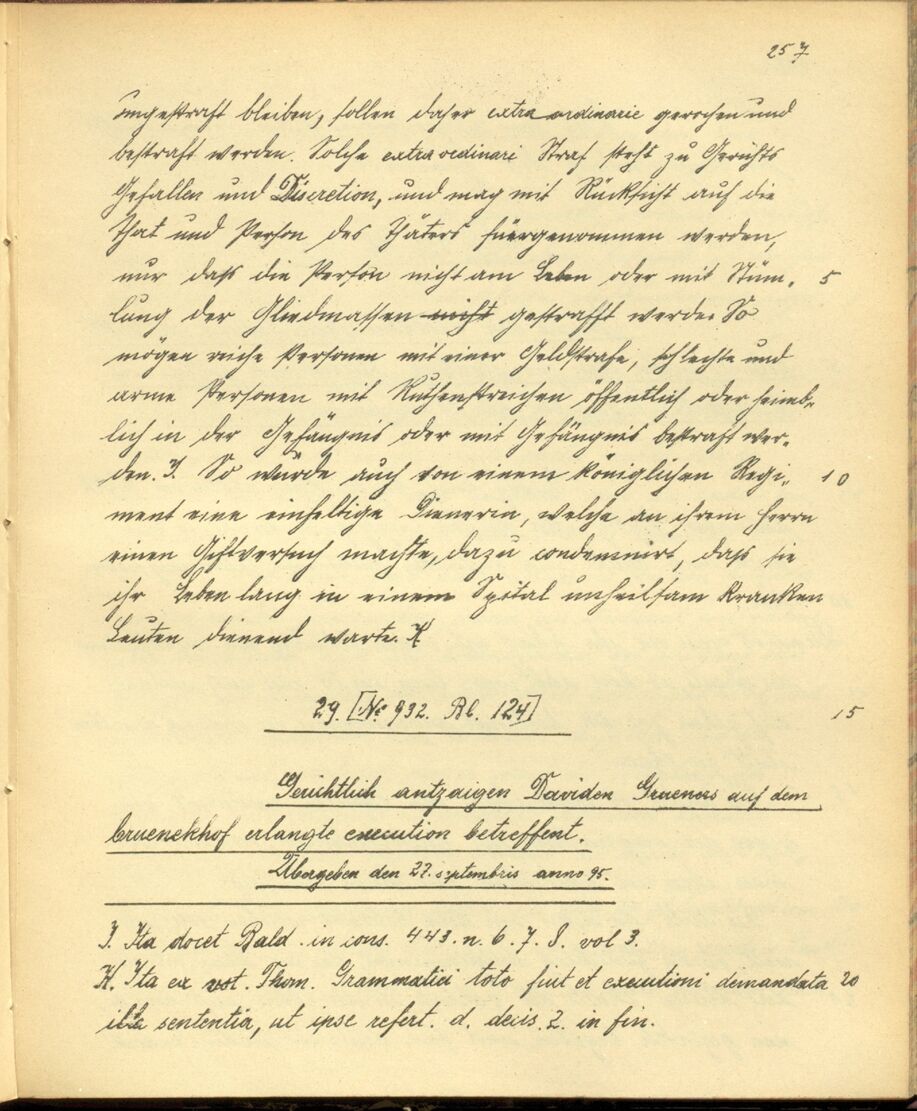 257
ungestraft bleiben, sollen daher extra ordinarie gerochen und
bestraft werden. Solche extra ordinari Straf steht zu Gerichts
Gefallen und Discretion, und mag mit Rücksicht auf die
That und Person des Thäters fürgenommen werden,
nur daß die Person nicht am Leben oder mit Stüm- 5
lung der Gliedmassen nicht gestrafft werde. So
mögen reiche Personen mit einer Geldstrafe, schlechte und
arme Personen mit Ruthenstreichen öffentlich oder heimb-
lich in der Gefängnis oder mit Gefängnis bestraft wer-
den. J. So wurde auch von einem königlichen Regi- 10
ment eine einfeltige Dienerin, welche an ihrem Herrn
einen Giftversuch machte, dazu condemnirt, daß sie
ihr Leben lang in einem Spital unheilsam Kranken
Leuten dienend warte. K
29. [No 932. Bl. 124] 15
Gerichtlich antzaigen Daviden Grueners auf dem
Gruenekhof erlangte execution betreffent.
Übergeben den 27. septembris anno 95.
J. Ita docet Bald. in cons. 443. n. 6. 7. 8. vol 3.
K. Ita ex vot. Thom. Grammatici toto fuit et executioni demandata 20
illa sententia, ut ipse refert. d. decis. 2. in fin.